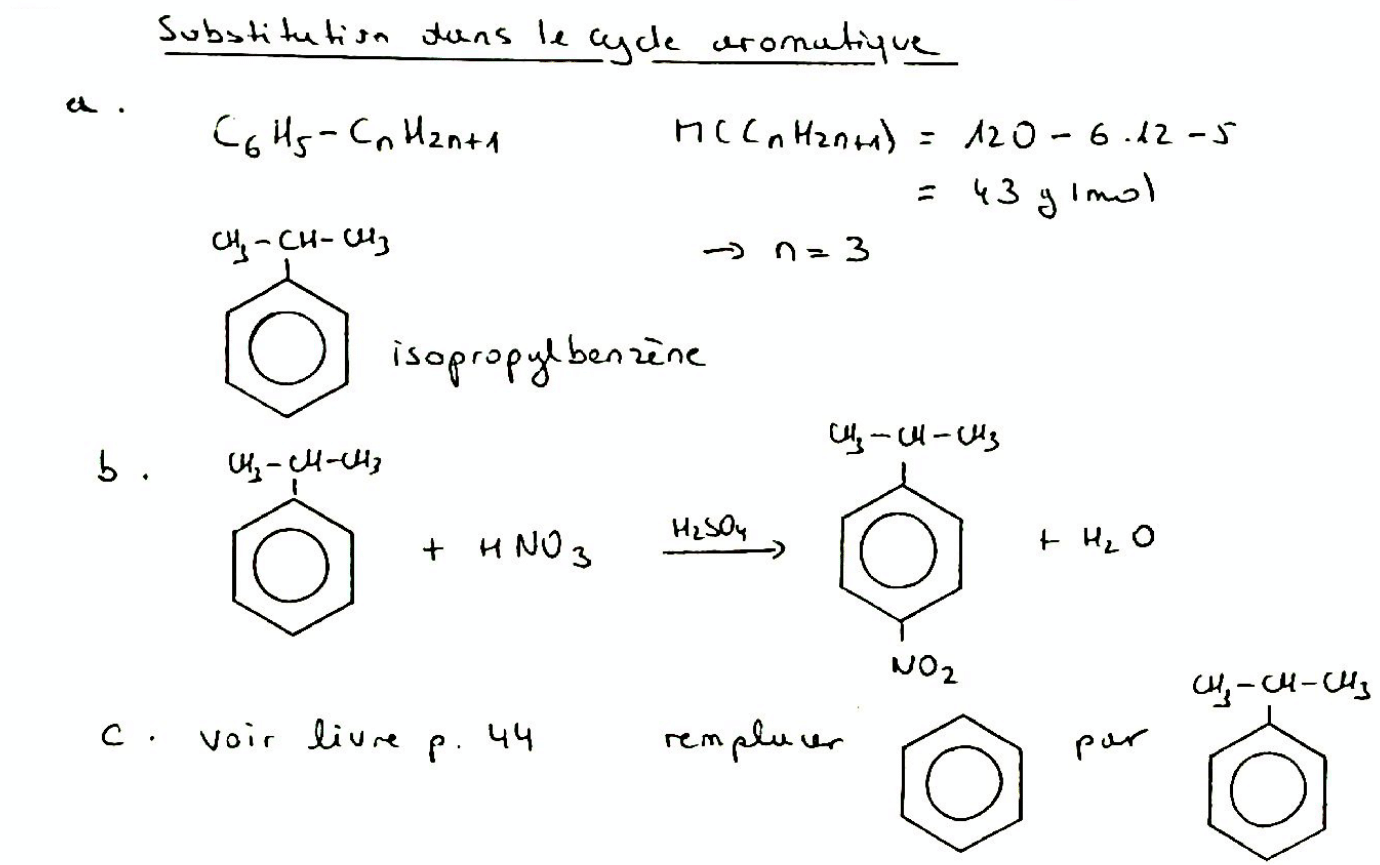 Substitution dans le cycle aromatique
a.
C6H5-CnH2n+1 M(CnH2n+1) = 120 - 6.12 - 5
= 43 g/mol
CH3-CH-CH3 → n = 3
isopropylbenzène
CH3-CH-CH3
b. CH3-CH-CH3
+ HNO3 H2SO4 → + H2O
NO2
CH3-CH-CH3
c. voir livre p. 44 remplacer par